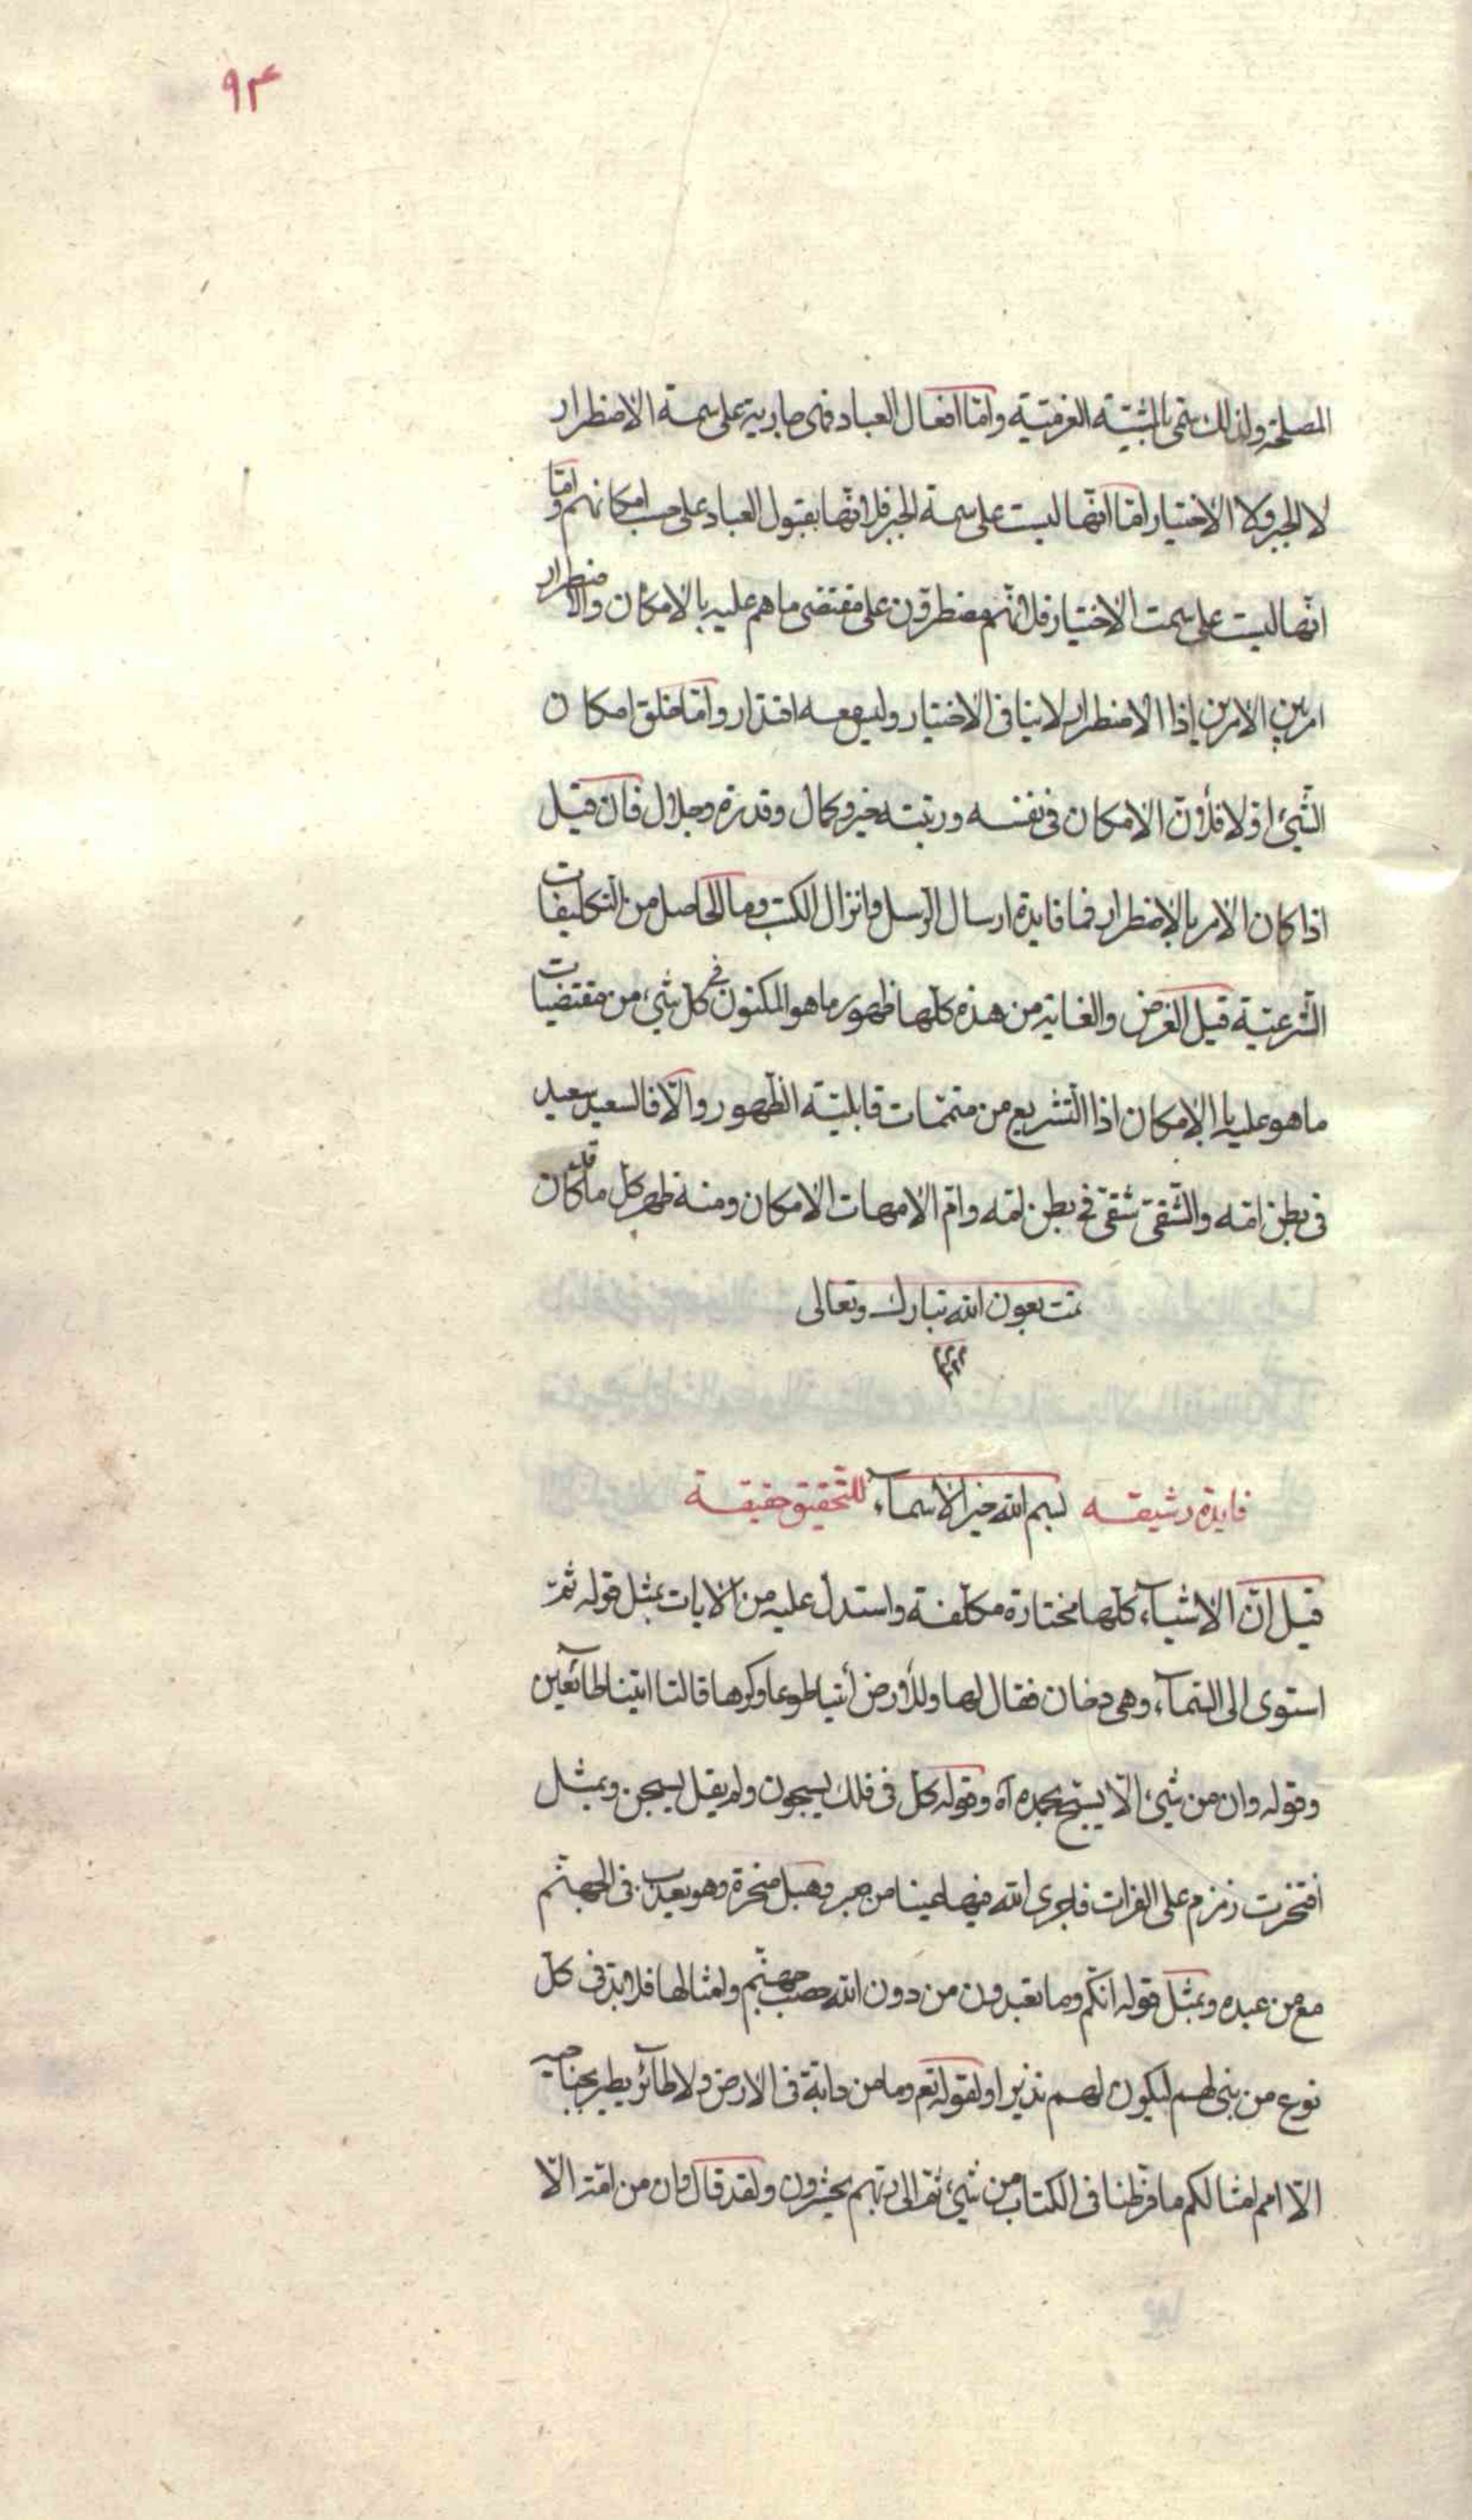 ٩٣
المصلحة ولذلك سمّى بالمشيّة العزميّة وامّا افعال العباد فهى جارية على سمة الاضطرار
لا الجبر ولا الاختيار امّا انّها ليست على سمة الجبر فلانّها بقبول العباد على حسب امكانهم وامّا
انّها ليست على سمت الاختيار فلانّهم مضطرّون على مقتضى ما هم عليه بالامكان والاضطرار
امر بين الامرين اذا الاضطرار لا ينافى الاختيار وليس معه اقتدار وامّا خلق امكان
الشّيئ اوّلا فلأنّ الامكان فى نفسه ورتبته خير وكمال وقدرة وجلال فان قيل
اذا كان الامر بالاضطرار فما فايدة ارسال الرّسل وانزال الكتب وما الحاصل من التكليفات
الشّرعيّة قيل الغرض والغاية من هذه كلّها ظهور ما هو المكنون فى كلّ شيء من مقتضيات
ما هو عليه بالامكان اذا التّشريع من متمّمات قابليّة الظّهور والّا فالسعيد سعيد
فى بطن امّه والشّقىّ شقىّ فى بطن امّه وامّ الامهات الامكان ومنه ظهر كلّ ما كان
تمت بعون الله تبارك وتعالى
فايدة رشيقه بسم الله خير الأسمآء للتّحقيق حقيقة
قيل انّ الاشيآء كلّها مختارة مكلّفة واستدلّ عليه من الآيات بمثل قوله ثمّ
استوى الى السّمآء وهى دخان فقال لها وللأرض أتيا طوعا وكرها قالتا اتينا طآئعين
وقوله وان من شيء الّا يسبّح بحمده آه وقوله كلّ فى فلك يسبحون ولم يقل يسبحن وبمثل
افتخرت زمزم على الفرات فاجرى الله فيها عينا من صبر وهبل صخرة وهو يعذّب فى الجهنّم
مع من عبده وبمثل قوله انّكم وما تعبدون من دون الله حصب جهنّم وامثالها فلابدّ فى كلّ
نوع من نبى لهم ليكون لهم نذيرا ولقوله تع وما من دابّة فى الارض ولا طآئر يطير بجناحيه
الّا امم امثالكم ما فرّطنا فى الكتاب من شيء ثمّ الى ربّهم يحشرون ولقد قال وان من امّة الّا